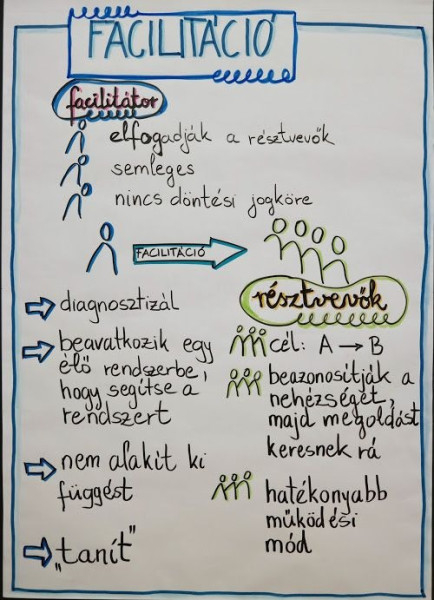 FACILITÁCIÓ
facilitátor
elfogadják a résztvevők
semleges
nincs döntési jogköre
FACILITÁCIÓ
résztvevők
diagnosztizál
beavatkozik egy
élő rendszerbe,
hogy segítse a
rendszert
nem alakít ki
függést
„tanít”
cél: A → B
beazonosítják a
nehézséget,
majd megoldást
keresnek rá
hatékonyabb
működési
mód